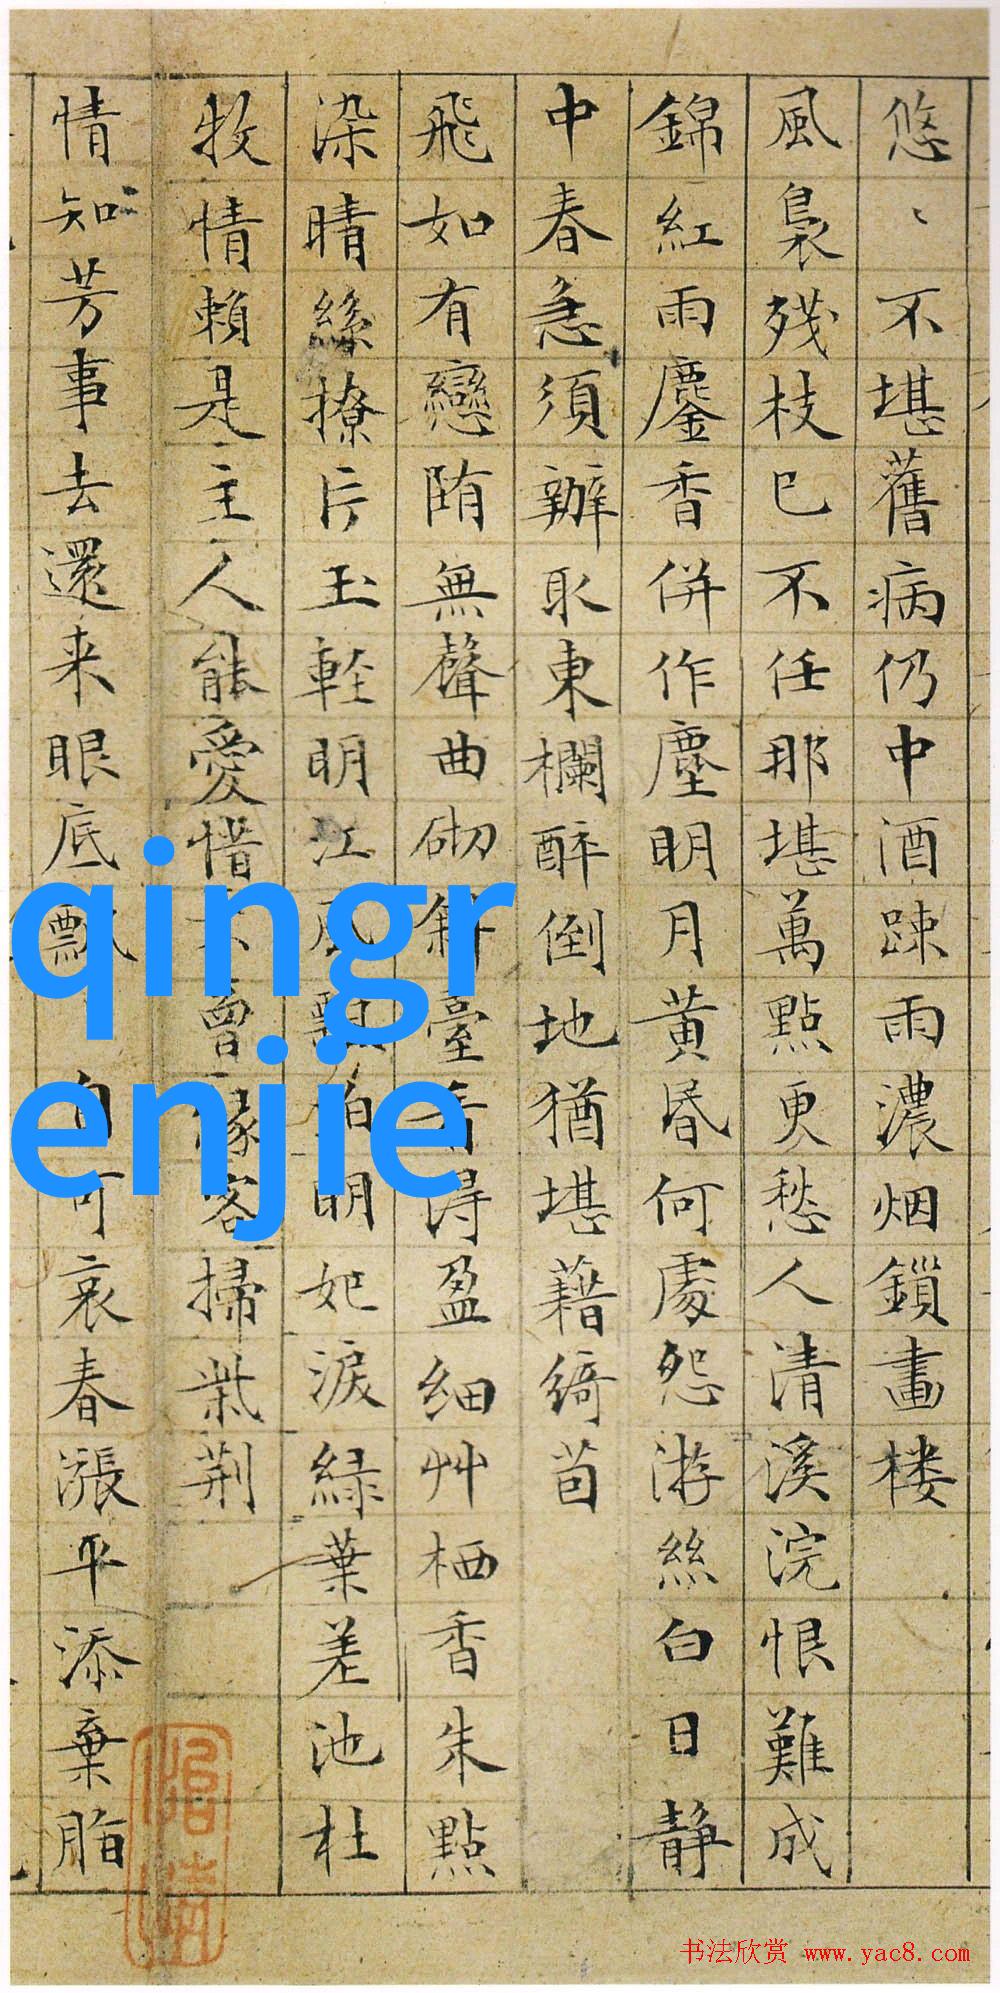 悠、不堪舊病仍中酒踈雨濃烟鎖畫楼
風裊残枝已不任那堪萬點更愁人清溪浣恨難成
錦紅雨鏖香併作塵明月黄昏何處怨游絲白日静
中春急須辦取東欄醉倒地猶堪藉綺茵
飛如有戀隋無聲曲砌斜臺看得盈細艸栖香朱點
染晴絲撩片玉軽明江風飄泊明妃淚緑葉差池杜
牧情賴是主人能愛惜不曾緣客掃柴荆
情知芳事去還来眼底飄、自可哀春漲平添棄脂
qingr
enjie
书法欣赏 www.yac8.com